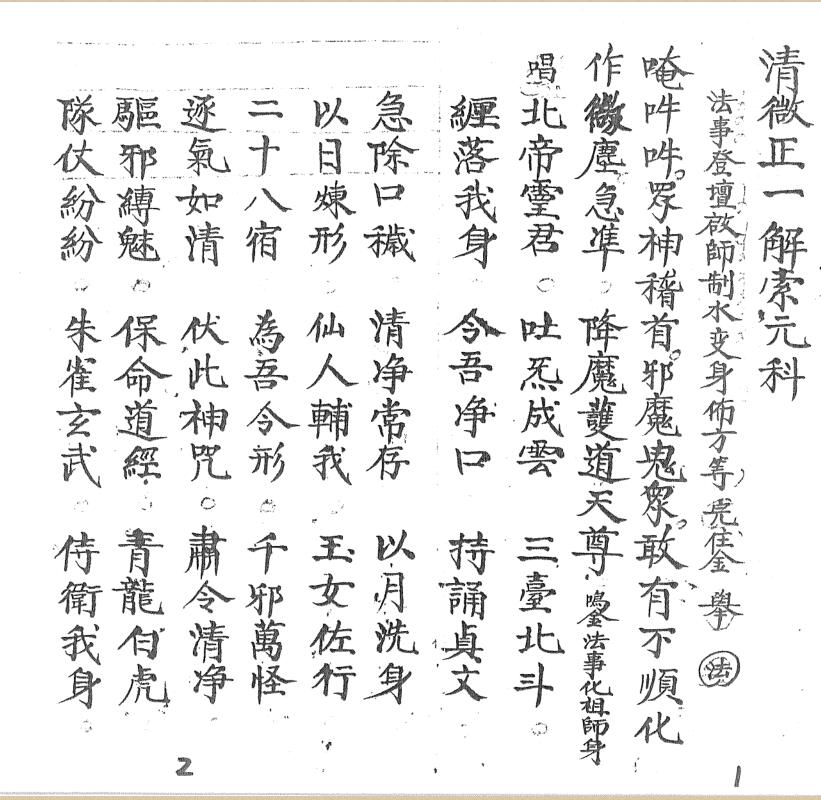 清微正一解索元科
法事登壇啟師制水变身佈方等完住金 舉 法
唵吽吽。眾神稽首。邪魔鬼眾。敢有不順化
作微塵急準 降魔護道天尊 鳴金法事化祖師身
唱北帝靈君 吐炁成雲 三臺北斗
纏落我身 令吾净口 持誦貞文
急除口穢 清净常存 以月洗身
以日煉形 仙人輔我 玉女佐行
二十八宿 為吾令形 千邪萬怪
逐氣如清 伏此神咒 肅令清净
驅邪縛魅 保命道經 青龍白虎
隊仗紛紛 朱雀玄武 侍衛我身
1
2